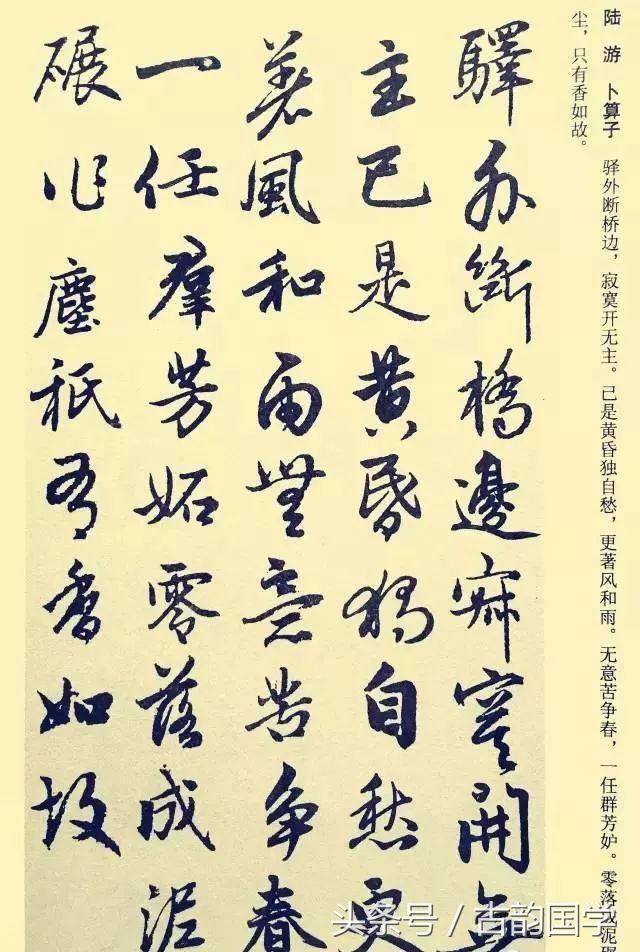 陆 游 卜算子 驿外断桥边，寂寞开无主。已是黄昏独自愁，更著风和雨。无意苦争春，一任群芳妒。零落成泥碾
尘，只有香如故。
驛外斷橋邊寂寞開無
主已是黄昏獨自愁更
著風和雨無意苦爭春
一任羣芳妬零落成泥
碾作塵祇有香如故
头条号 / 古韵国学